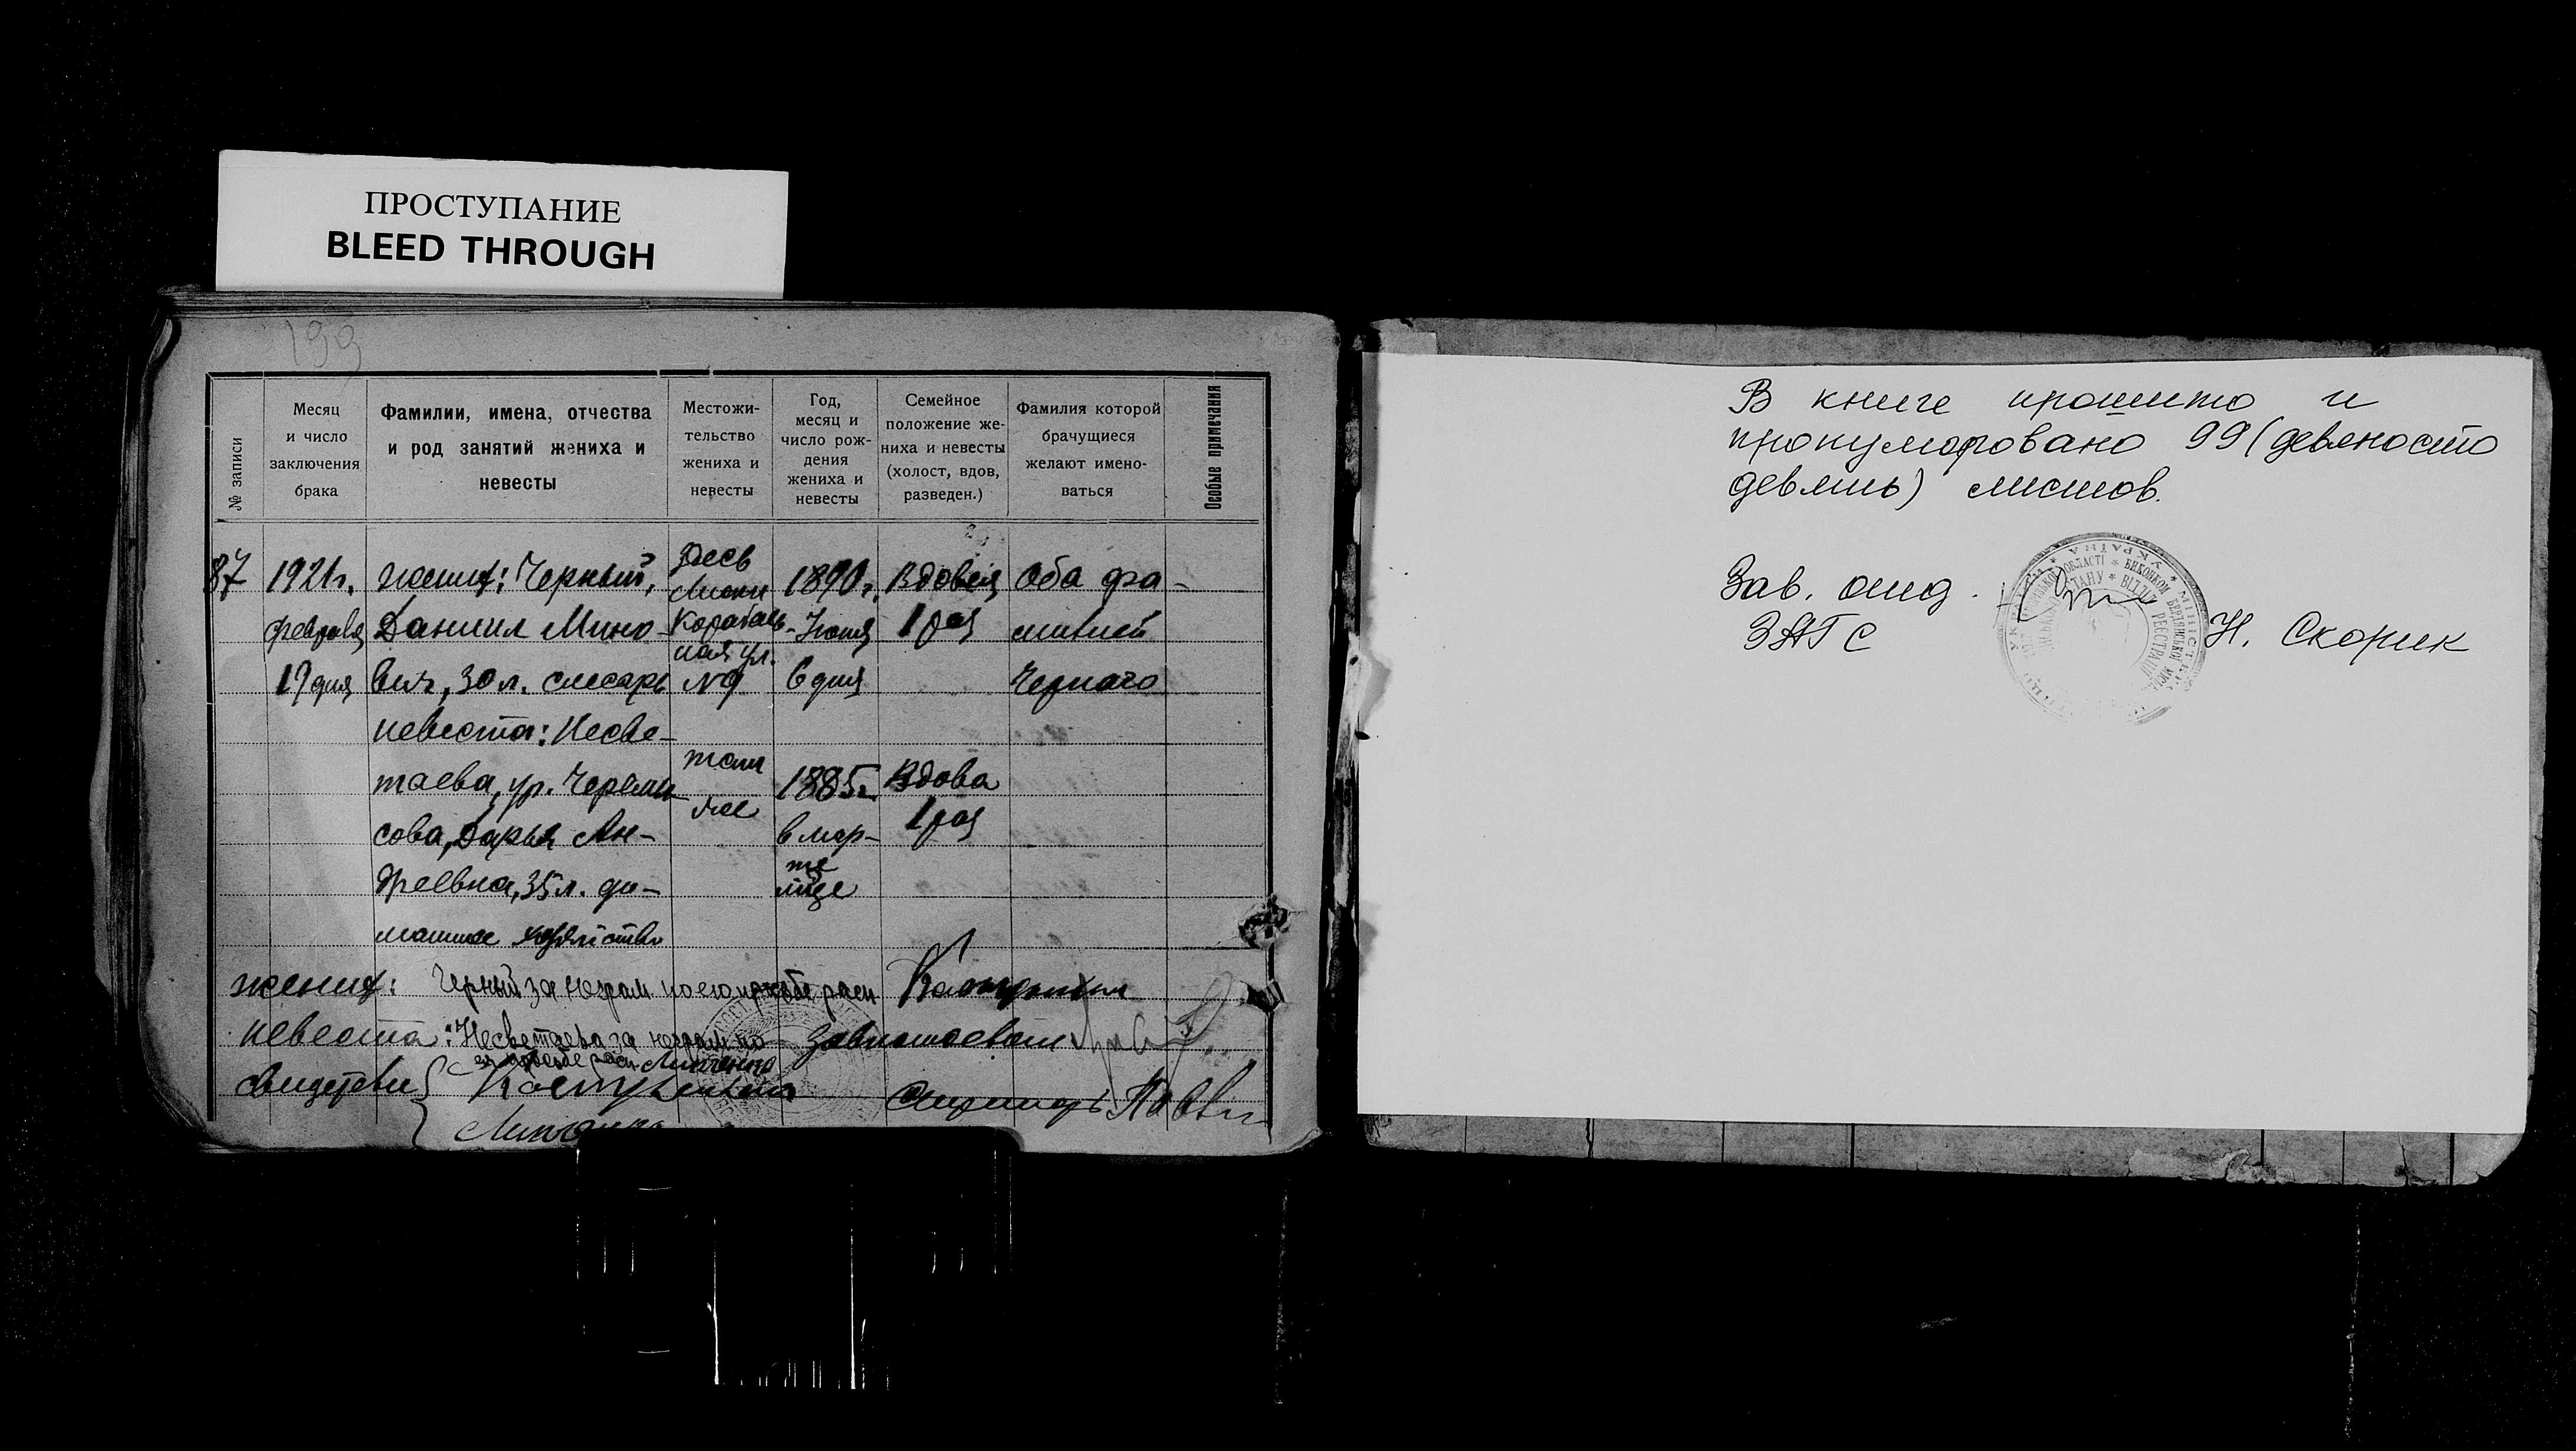 ПРОСТУПАНИЕ
BLEED THROUGH
199
№ записи
Месяц
и число
заключения
брака
Фамилии, имена, отчества
и род занятий жениха и
невесты
Местожи-
тельство
жениха и
невесты
Год,
месяц и
число рож-
дения
жениха и
невесты
Семейное
положение же-
ниха и невесты
(холост, вдов,
разведен.)
Фамилия которой
брачущиеся
желают имено-
ваться
Особые примечания
87
1921 г.
февраля
19 дня
жених: Черный,
Даниил Мино-
вич, 30 л. слесарь
невеста: Несве-
таева, ур. Черемы
сова, Дарья Ан-
дреевна, 35 л. до-
машнее хозяйство
здесь
Лиски
Корабель-
ная ул.
№9
там
же
1890 г.
Июня
6 дня
1885 г.
в мар-
те
м-це
Вдовец
1 раз
Вдова
1 раз
Оба фа-
милией
Чернаго
жених: Черный за неграм по его прозбе расп
невеста: Несветаева за неграм по
ея прозбе расп Литченко
свидетели
Завполоевати
В книге прошито и
пронумеровано 99 (девяносто
девять) листов.
Зав. отд.
ЗАГС
Н. Скорик